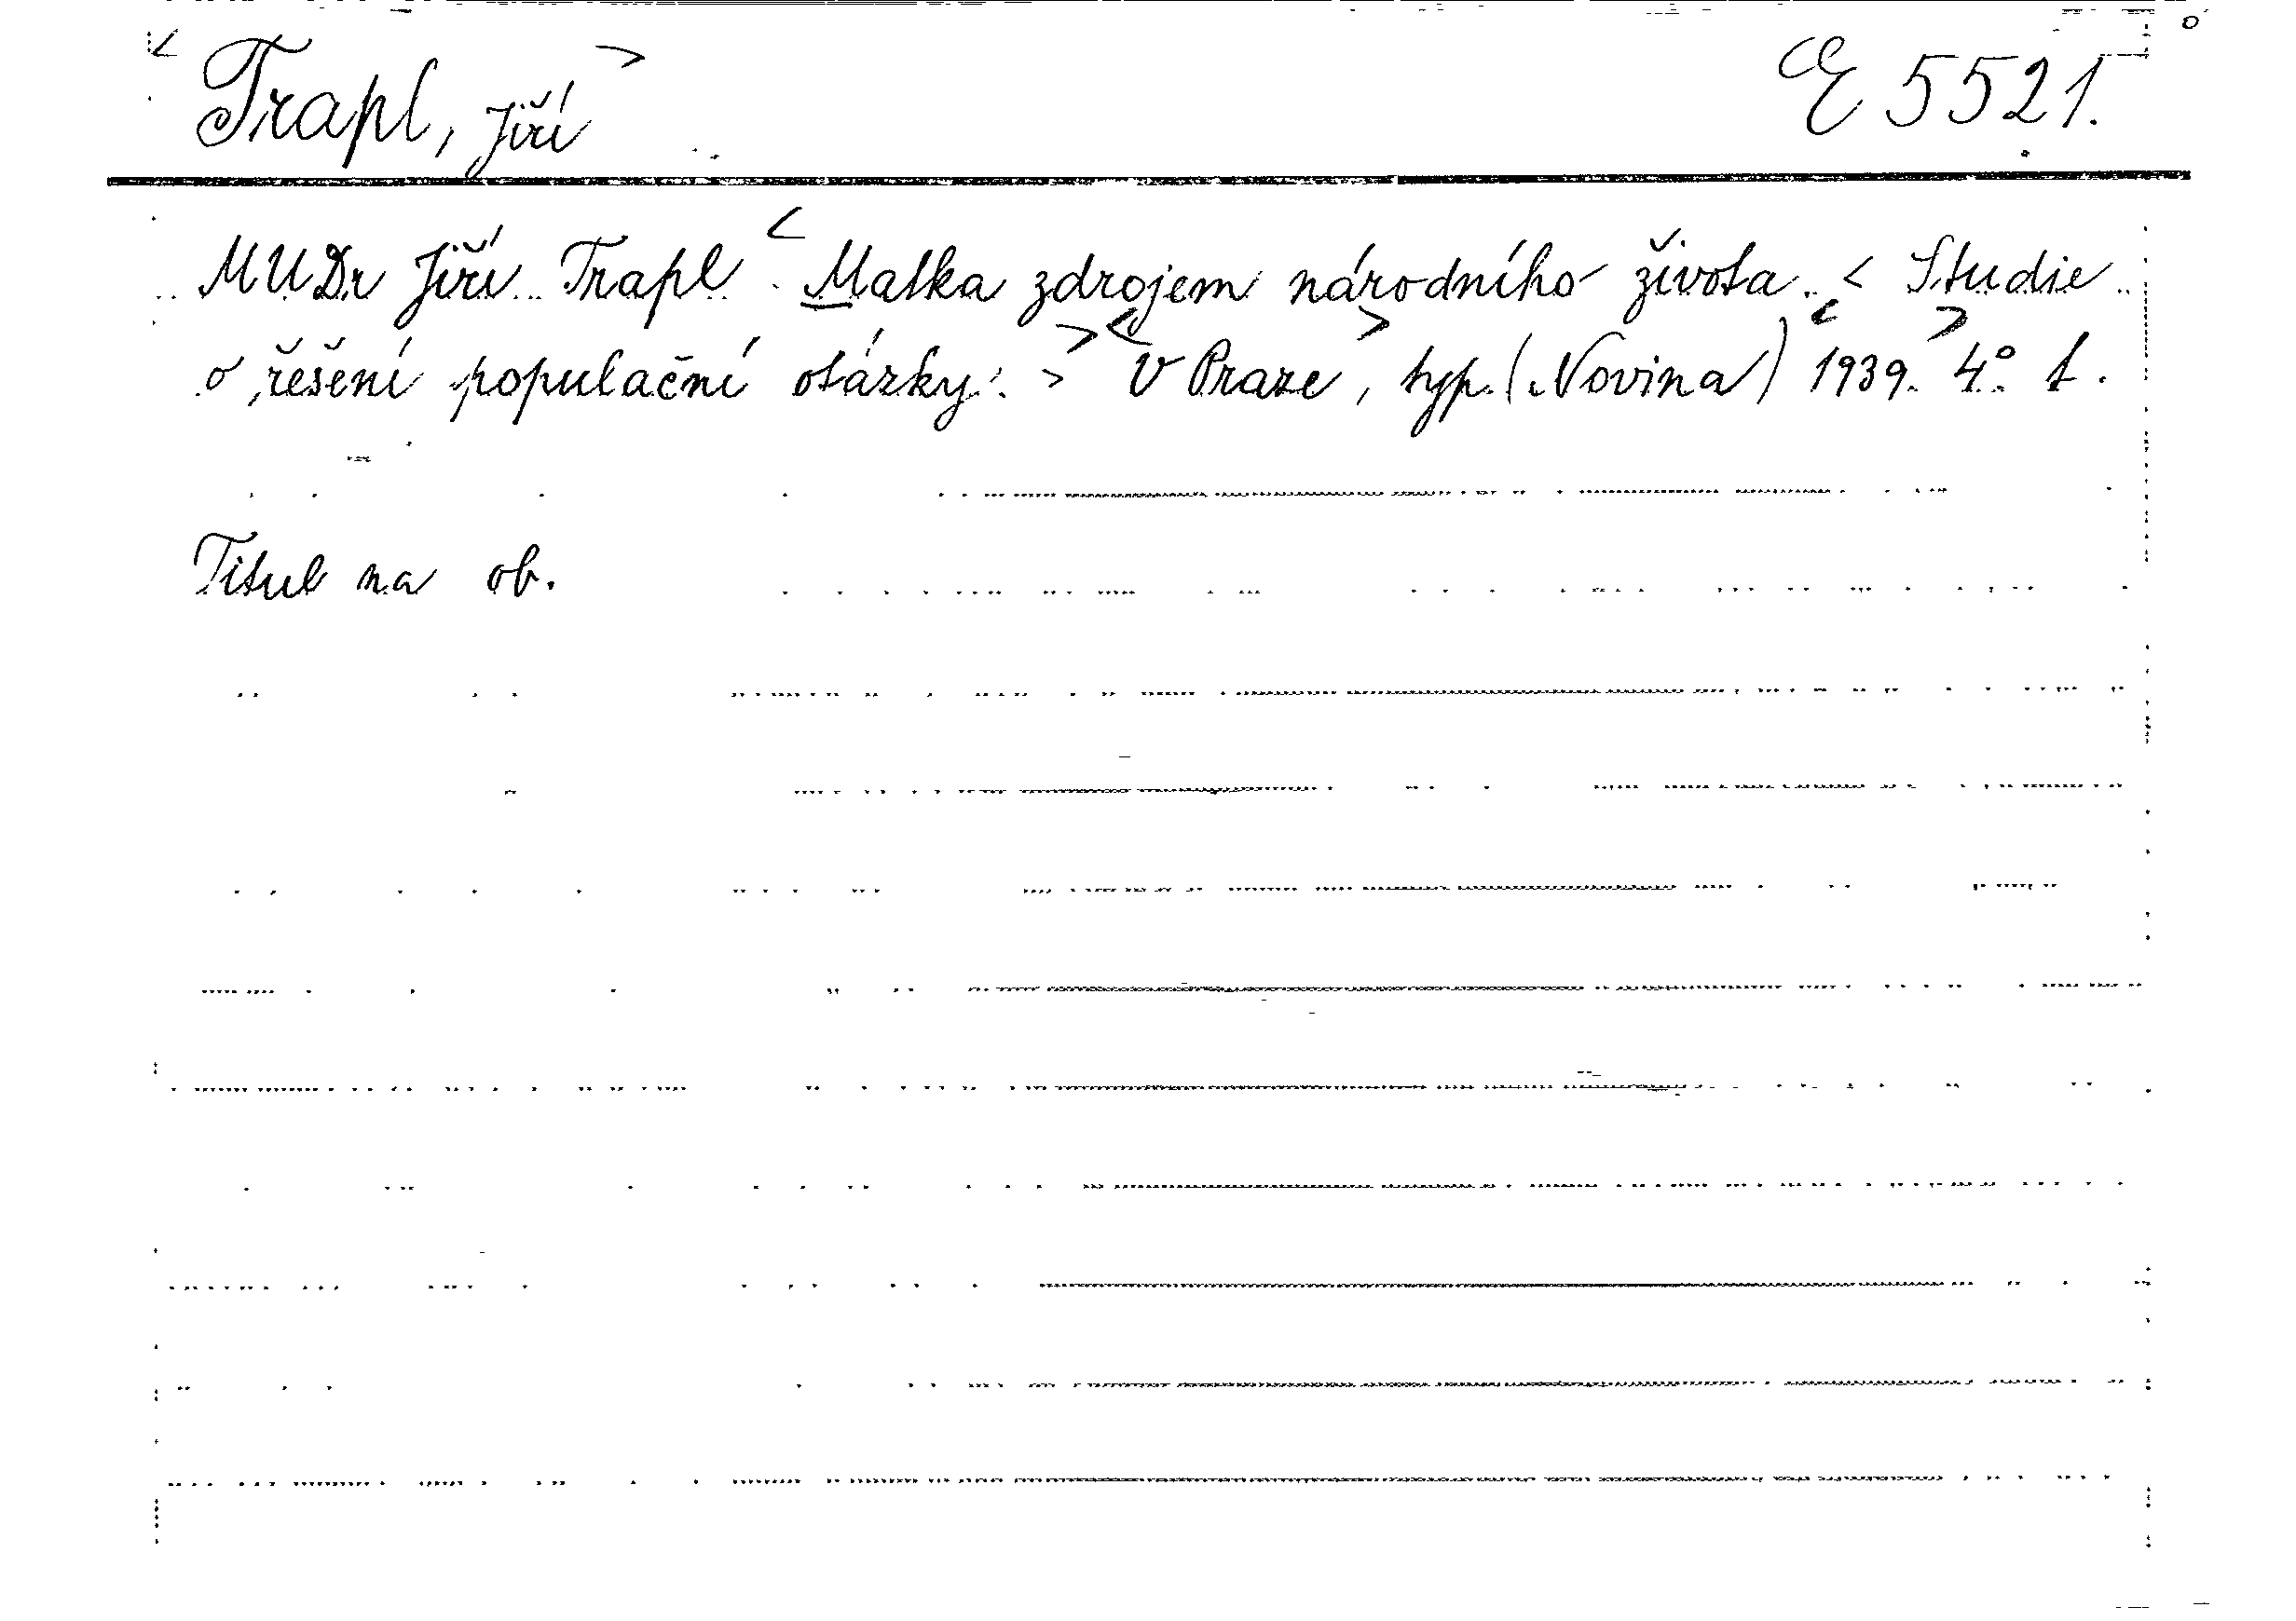 < Trapl, Jiří > E 5521.
MUDr Jiří Trapl < Matka zdrojem národního života. < Studie
o řešení populační otázky. > > < V Praze >, typ. (Novina) < 1939. > 4° 1.
Titul na ob.